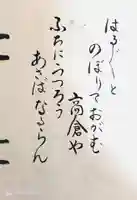 はる〲と
のぼりておがむ
高倉や
ふちにうつろう
あさばなるらん